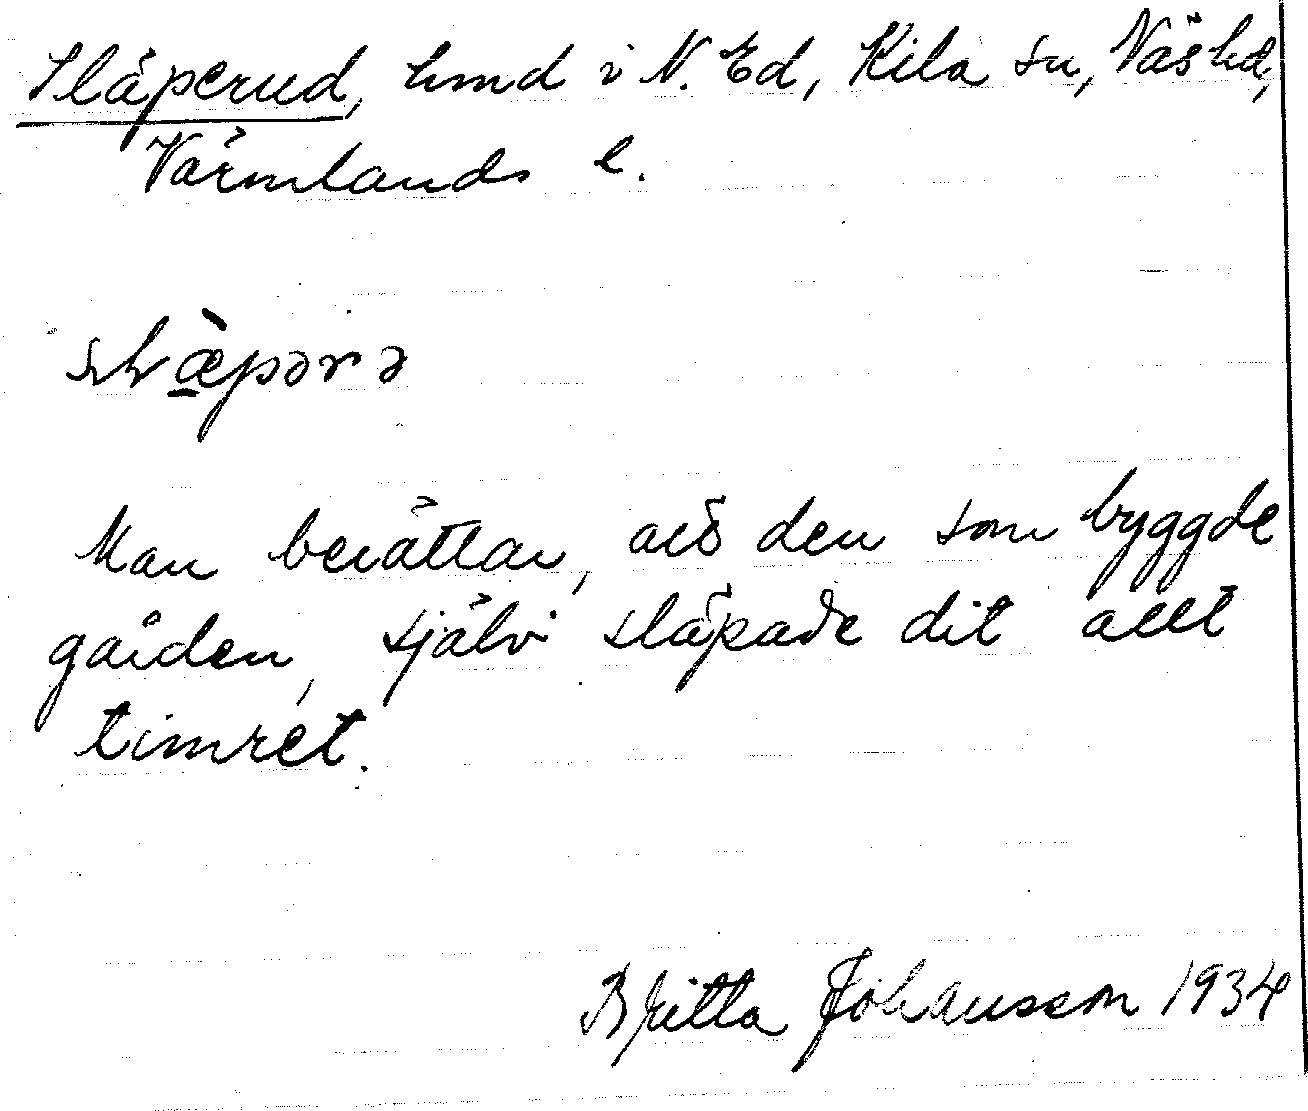 Släperud, hmd i N. Ed, Kila sn, Näs hd,
Värmlands l.
Man berättar, att den som byggde
gården, själv släpade dit allt
timret.
Britta Johansson 1934